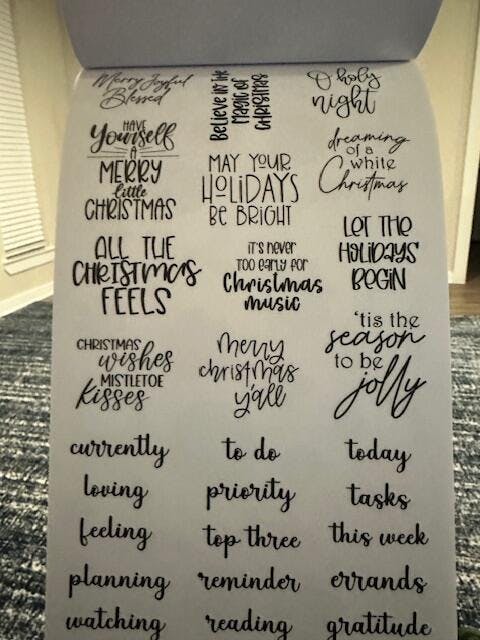 Merry Joyful
Blessed
Believe in the
Magic of
Christmas
O holy
night
HAVE
YOURSELF
A
MERRY
little
CHRISTMAS
MAY YOUR
HOLIDAYS
BE BRIGHT
dreaming
of a
white
Christmas
ALL THE
CHRISTMAS
FEELS
IT'S NEVER
TOO EARLY FOR
Christmas
music
LET THE
HOLIDAYS
BEGIN
CHRISTMAS
wishes
MISTLETOE
kisses
merry
christmas
y'all
'tis the
season
to be
jolly
currently to do today
loving priority tasks
feeling top three this week
planning reminder errands
watching reading gratitude